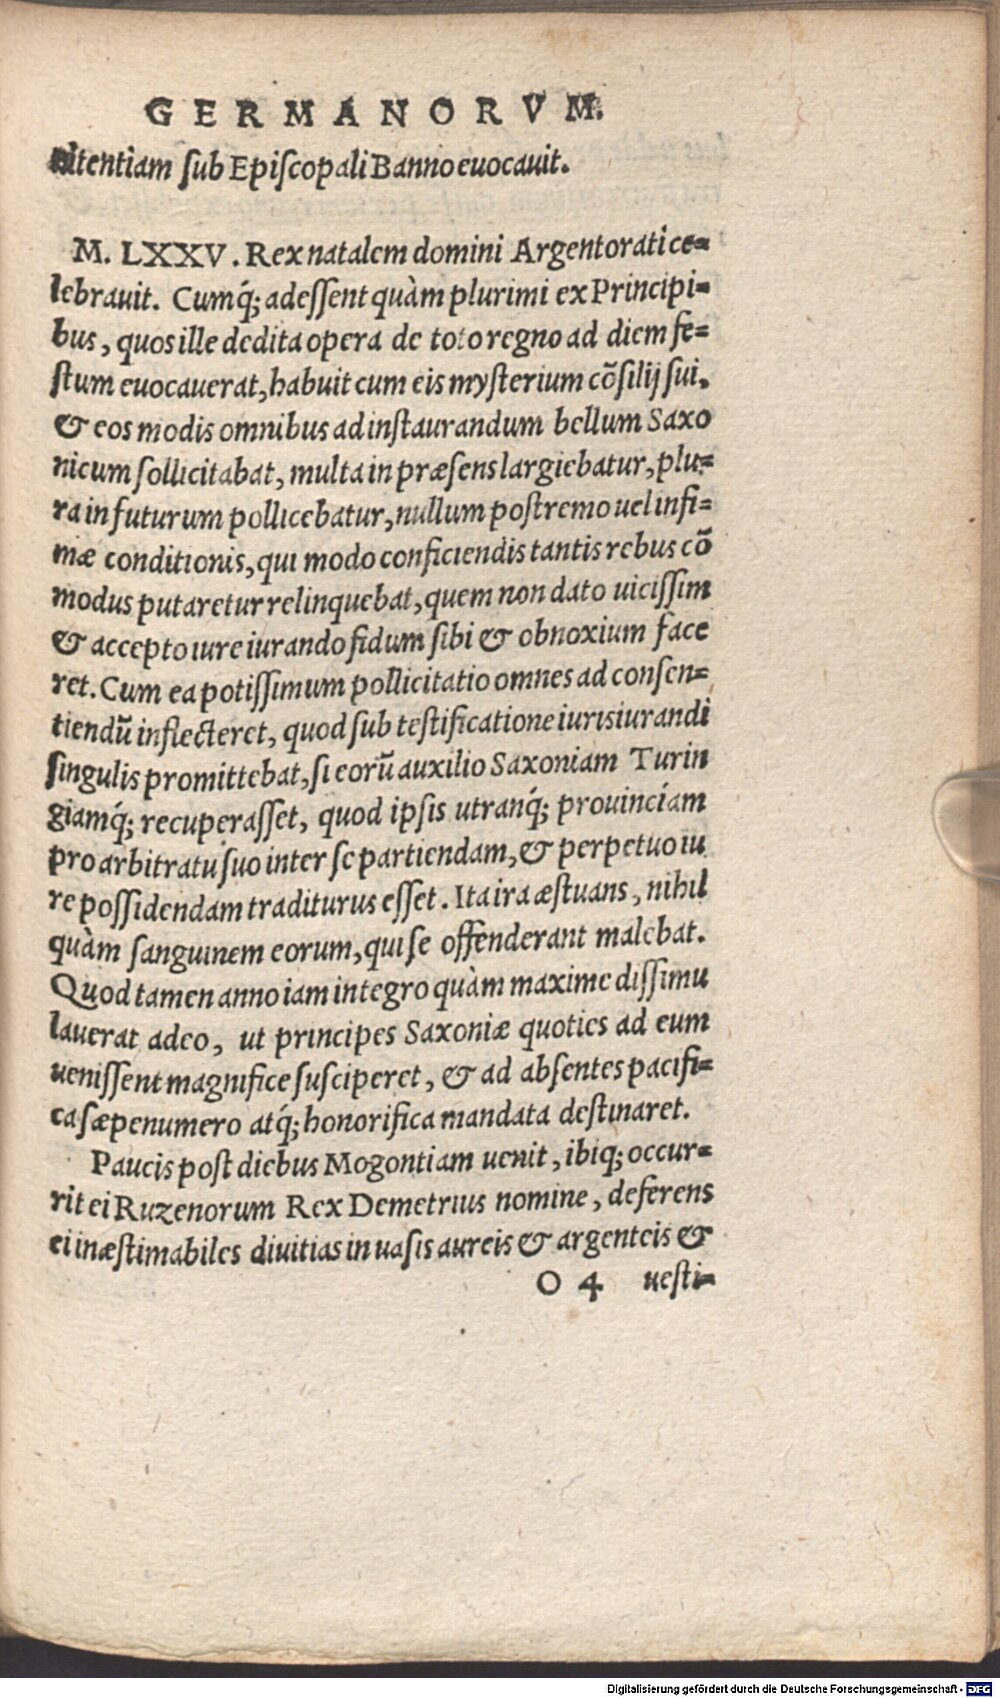 GERMANORVM.
nitentiam sub Episcopali Banno euocauit.
M. LXXV. Rex natalem domini Argentorati ce-
lebrauit. Cumq́; adessent quàm plurimi ex Principi-
bus, quos ille dedita opera de toto regno ad diem fe-
stum euocauerat, habuit cum eis mysterium cõsilij sui,
& eos modis omnibus ad instaurandum bellum Saxo
nicum sollicitabat, multa in præsens largiebatur, plu-
ra in futurum pollicebatur, nullum postremo uel infi-
mæ conditionis, qui modo conficiendis tantis rebus cõ
modus putaretur relinquebat, quem non dato uicissim
& accepto iure iurando fidum sibi & obnoxium face
ret. Cum ea potissimum pollicitatio omnes ad consen-
tiendũ inflecteret, quod sub testificatione iurisiurandi
singulis promittebat, si eorũ auxilio Saxoniam Turin
giamq́; recuperasset, quod ipsis utranq́; prouinciam
pro arbitratu suo inter se partiendam, & perpetuo iu
re possidendam traditurus esset. Ita ira æstuans, nihil
quàm sanguinem eorum, qui se offenderant malebat.
Quod tamen anno iam integro quàm maxime dissimu
lauerat adeo, ut principes Saxoniæ quoties ad eum
uenissent magnifice susciperet, & ad absentes pacifi-
ca sæpenumero atq́; honorifica mandata destinaret.
Paucis post diebus Mogontiam uenit, ibiq; occur-
rit ei Ruzenorum Rex Demetrius nomine, deferens
ei inæstimabiles diuitias in uasis aureis & argenteis &
O 4 uesti-
Digitalisierung gefördert durch die Deutsche Forschungsgemeinschaft - DFG